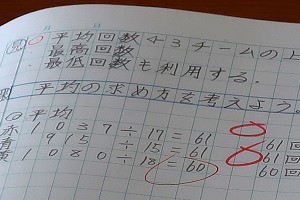 平均回数 ← 3チームの上
最高回数
最低回数も利用する.
平均の求め方を考えよう。
平均
赤 1037÷17=61 61回
青 915÷15=61 61回
黄 1080÷18=60 60回